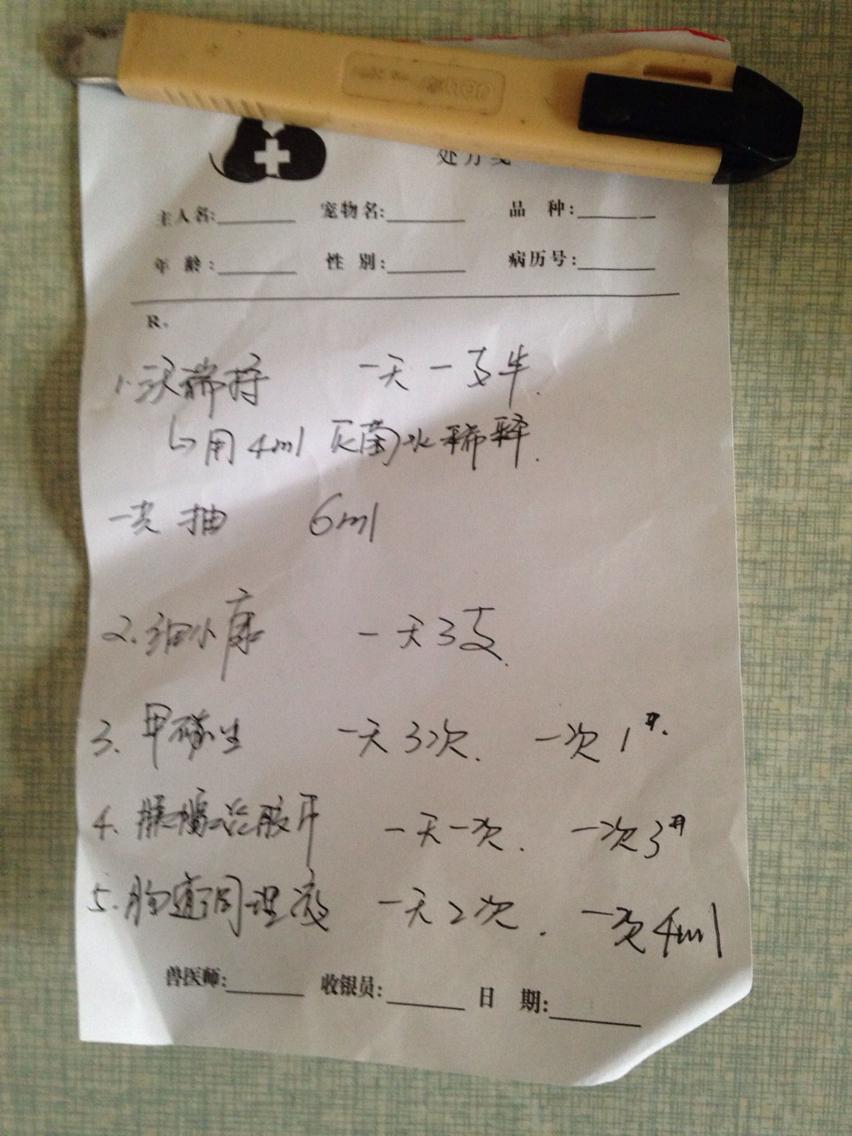 处方笺
主人名: 宠物名: 品 种:
年 龄: 性 别: 病历号:
R。
1. 沃瑞特 一天一支半.
用4ml 灭菌水稀释.
一共 抽 6ml
2. 细小康 一天3支.
3. 甲磺 一天3次. 一次1#.
4. 胶片 一天一次. 一次3#
5. 肠道调理液 一天2次. 一次4ml
兽医师: 收银员: 日 期: